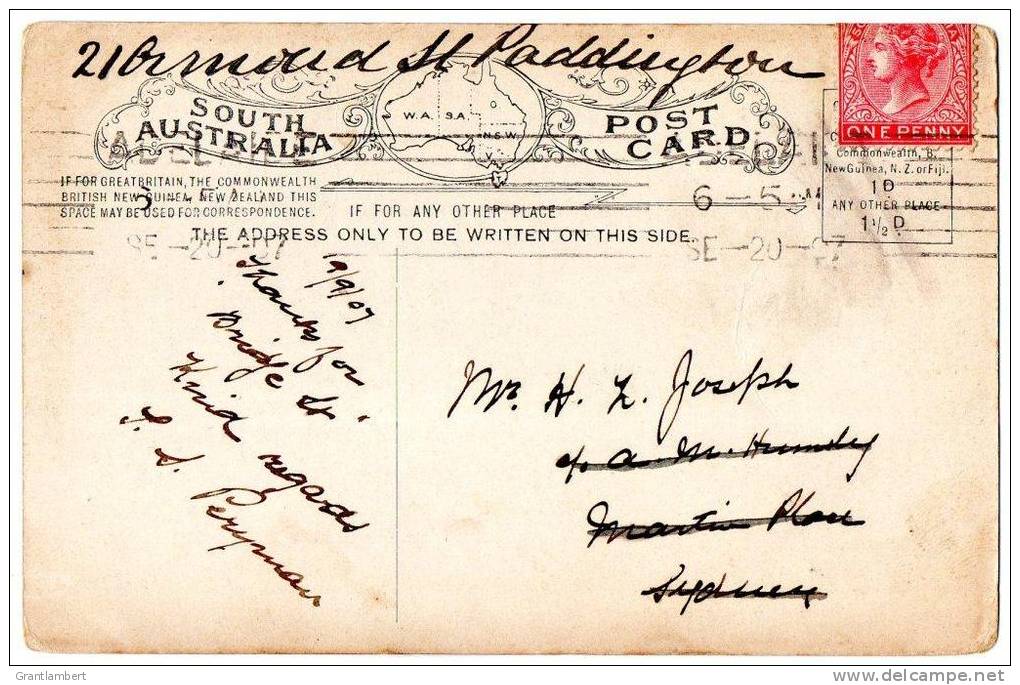 21 Ormond St Paddington
SOUTH AUSTRALIA
POST CARD
W.A.
S.A.
Q
N.S.W
V.
T
ONE PENNY
Commonwealth, B.
New Guinea, N. Z. or Fiji.
1D
ANY OTHER PLACE
1½ D.
IF FOR GREAT BRITAIN, THE COMMONWEALTH
BRITISH NEW GUINEA, NEW ZEALAND THIS
SPACE MAY BE USED FOR CORRESPONDENCE.
IF FOR ANY OTHER PLACE
THE ADDRESS ONLY TO BE WRITTEN ON THIS SIDE.
6-5
SE-20-07
SE-20-07
19/9/07
Thanks for
"Bridge St"
Kind regards
S. Perryman
Mr. H. L. Joseph
c/o A. M.
Martin Place
Sydney
Grantlambert
delcampe.net